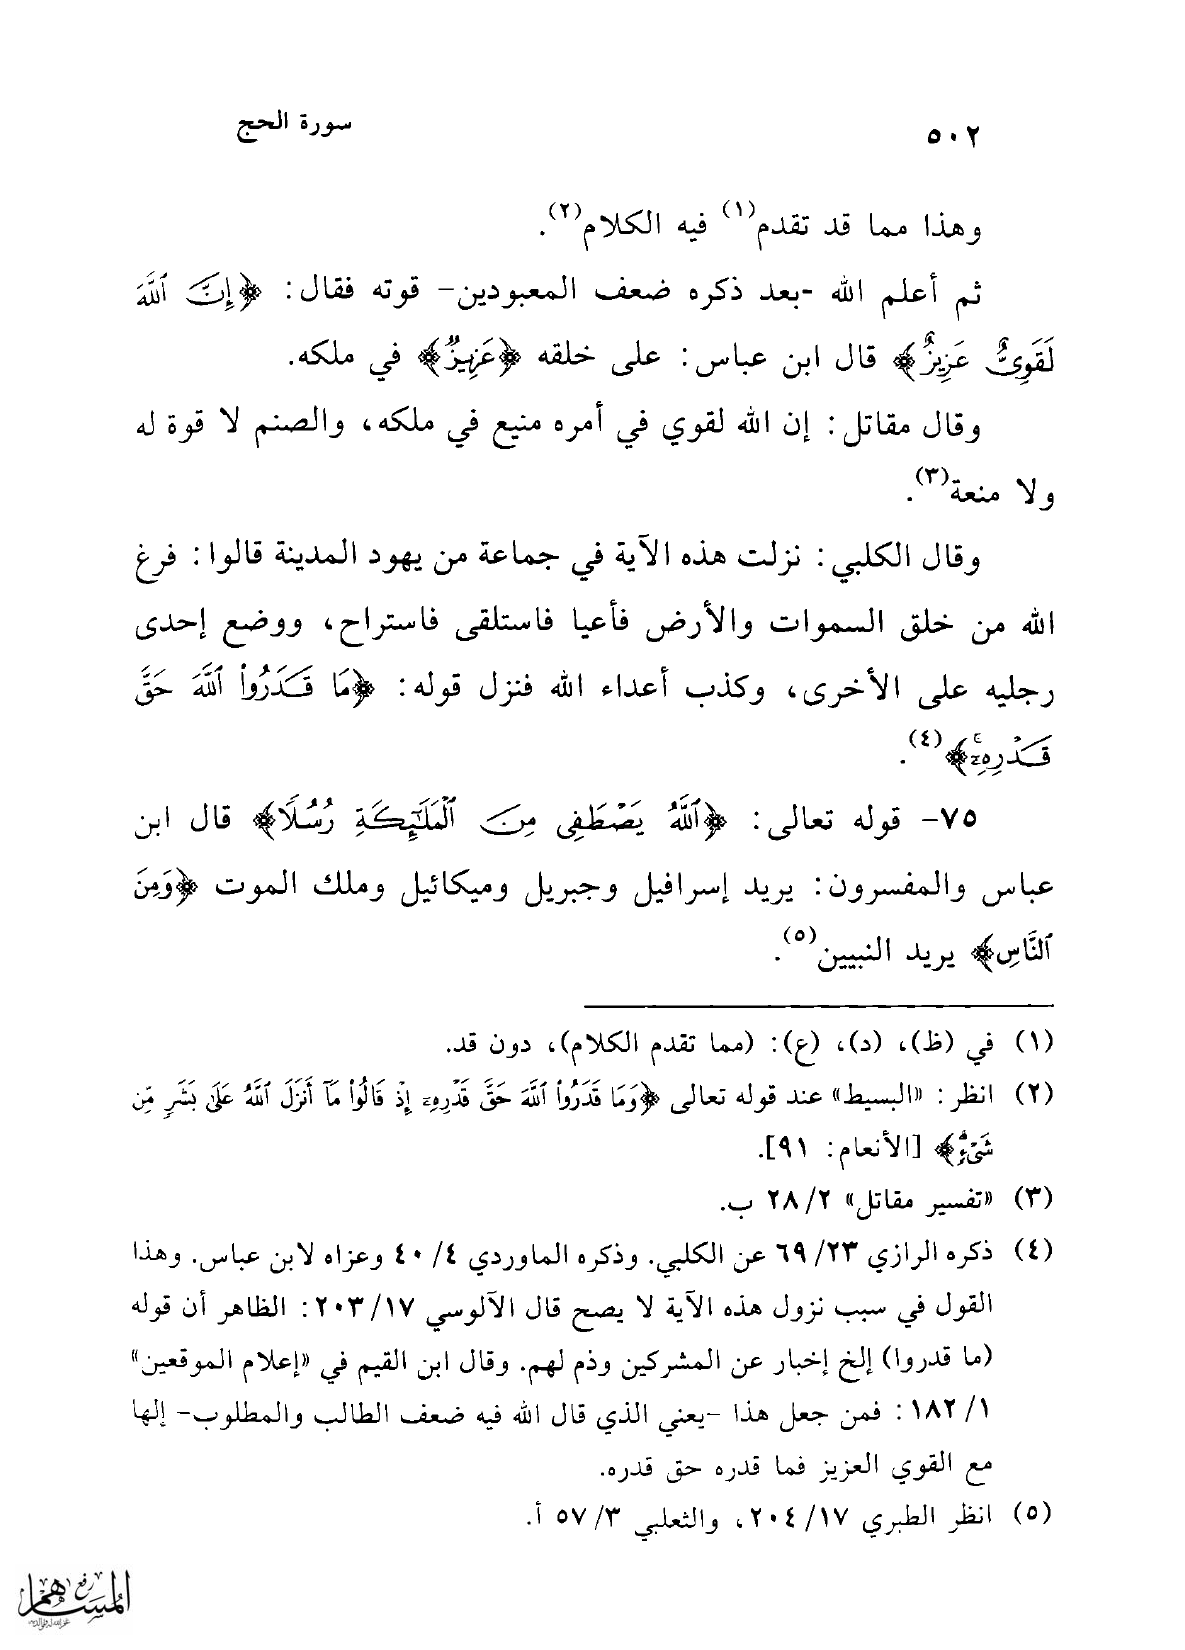 ٥٠٢ سورة الحج
وهذا مما قد تقدم(١) فيه الكلام(٢).
ثم أعلم الله -بعد ذكره ضعف المعبودين- قوته فقال: ﴿إِنَّ ٱللَّهَ
لَقَوِيٌّ عَزِيزٌ﴾ قال ابن عباس: على خلقه ﴿عَزِيزٌ﴾ في ملكه.
وقال مقاتل: إن الله لقوي في أمره منيع في ملكه، والصنم لا قوة له
ولا منعة(٣).
وقال الكلبي: نزلت هذه الآية في جماعة من يهود المدينة قالوا: فرغ
الله من خلق السموات والأرض فأعيا فاستلقى فاستراح، ووضع إحدى
رجليه على الأخرى، وكذب أعداء الله فنزل قوله: ﴿مَا قَدَرُوا۟ ٱللَّهَ حَقَّ
قَدْرِهِۦٓ﴾(٤).
٧٥- قوله تعالى: ﴿ٱللَّهُ يَصْطَفِى مِنَ ٱلْمَلَٰٓئِكَةِ رُسُلًا﴾ قال ابن
عباس والمفسرون: يريد إسرافيل وجبريل وميكائيل وملك الموت ﴿وَمِنَ
ٱلنَّاسِ﴾ يريد النبيين(٥).
(١) في (ظ)، (د)، (ع): (مما تقدم الكلام)، دون قد.
(٢) انظر: «البسيط» عند قوله تعالى ﴿وَمَا قَدَرُوا۟ ٱللَّهَ حَقَّ قَدْرِهِۦٓ إِذْ قَالُوا۟ مَآ أَنزَلَ ٱللَّهُ عَلَىٰ بَشَرٍ مِّن
شَىْءٍ﴾ [الأنعام: ٩١].
(٣) «تفسير مقاتل» ٢/ ٢٨ ب.
(٤) ذكره الرازي ٢٣/ ٦٩ عن الكلبي. وذكره الماوردي ٤/ ٤٠ وعزاه لابن عباس. وهذا
القول في سبب نزول هذه الآية لا يصح قال الآلوسي ١٧/ ٢٠٣: الظاهر أن قوله
(ما قدروا) إلخ إخبار عن المشركين وذم لهم. وقال ابن القيم في «إعلام الموقعين»
١/ ١٨٢: فمن جعل هذا -يعني الذي قال الله فيه ضعف الطالب والمطلوب- إلها
مع القوي العزيز فما قدره حق قدره.
(٥) انظر الطبري ١٧/ ٢٠٤، والثعلبي ٣/ ٥٧ أ.
رفع
المساهم